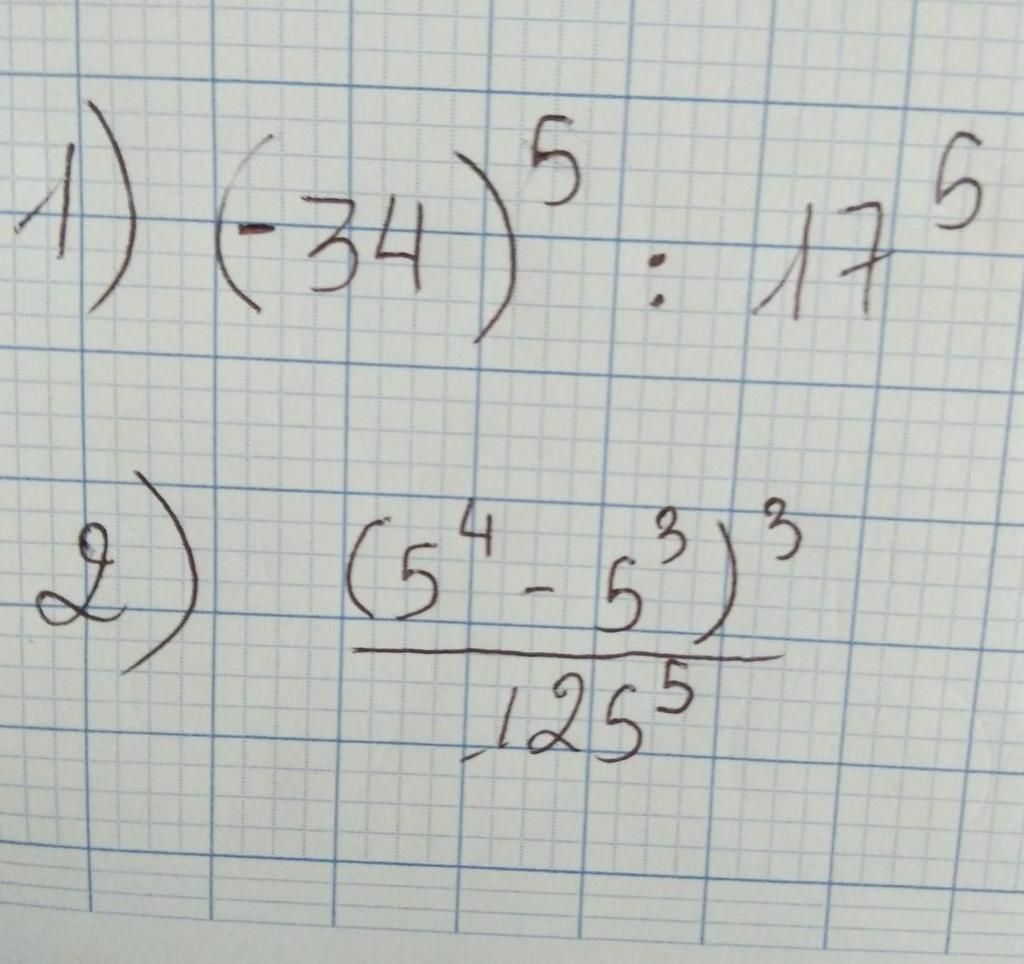 1) (-34)^5 : 17^5
2) (5^4 - 5^3)^3 / 125^5